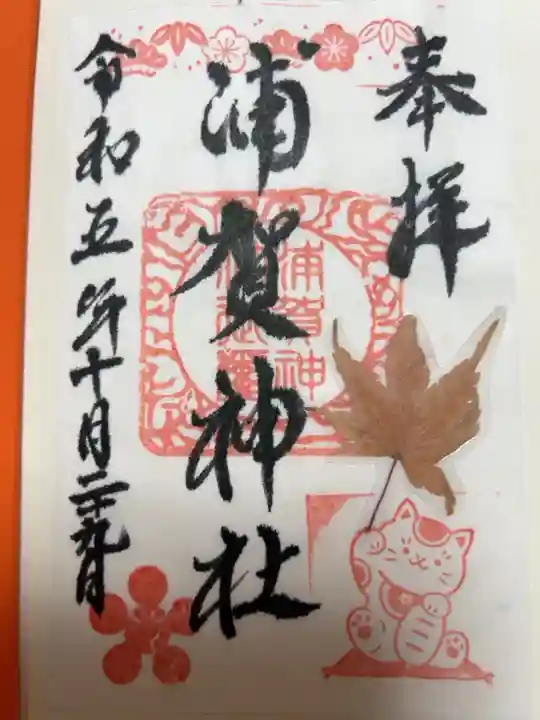 奉拝
浦賀神社
令和五年十月二十九日
浦賀神